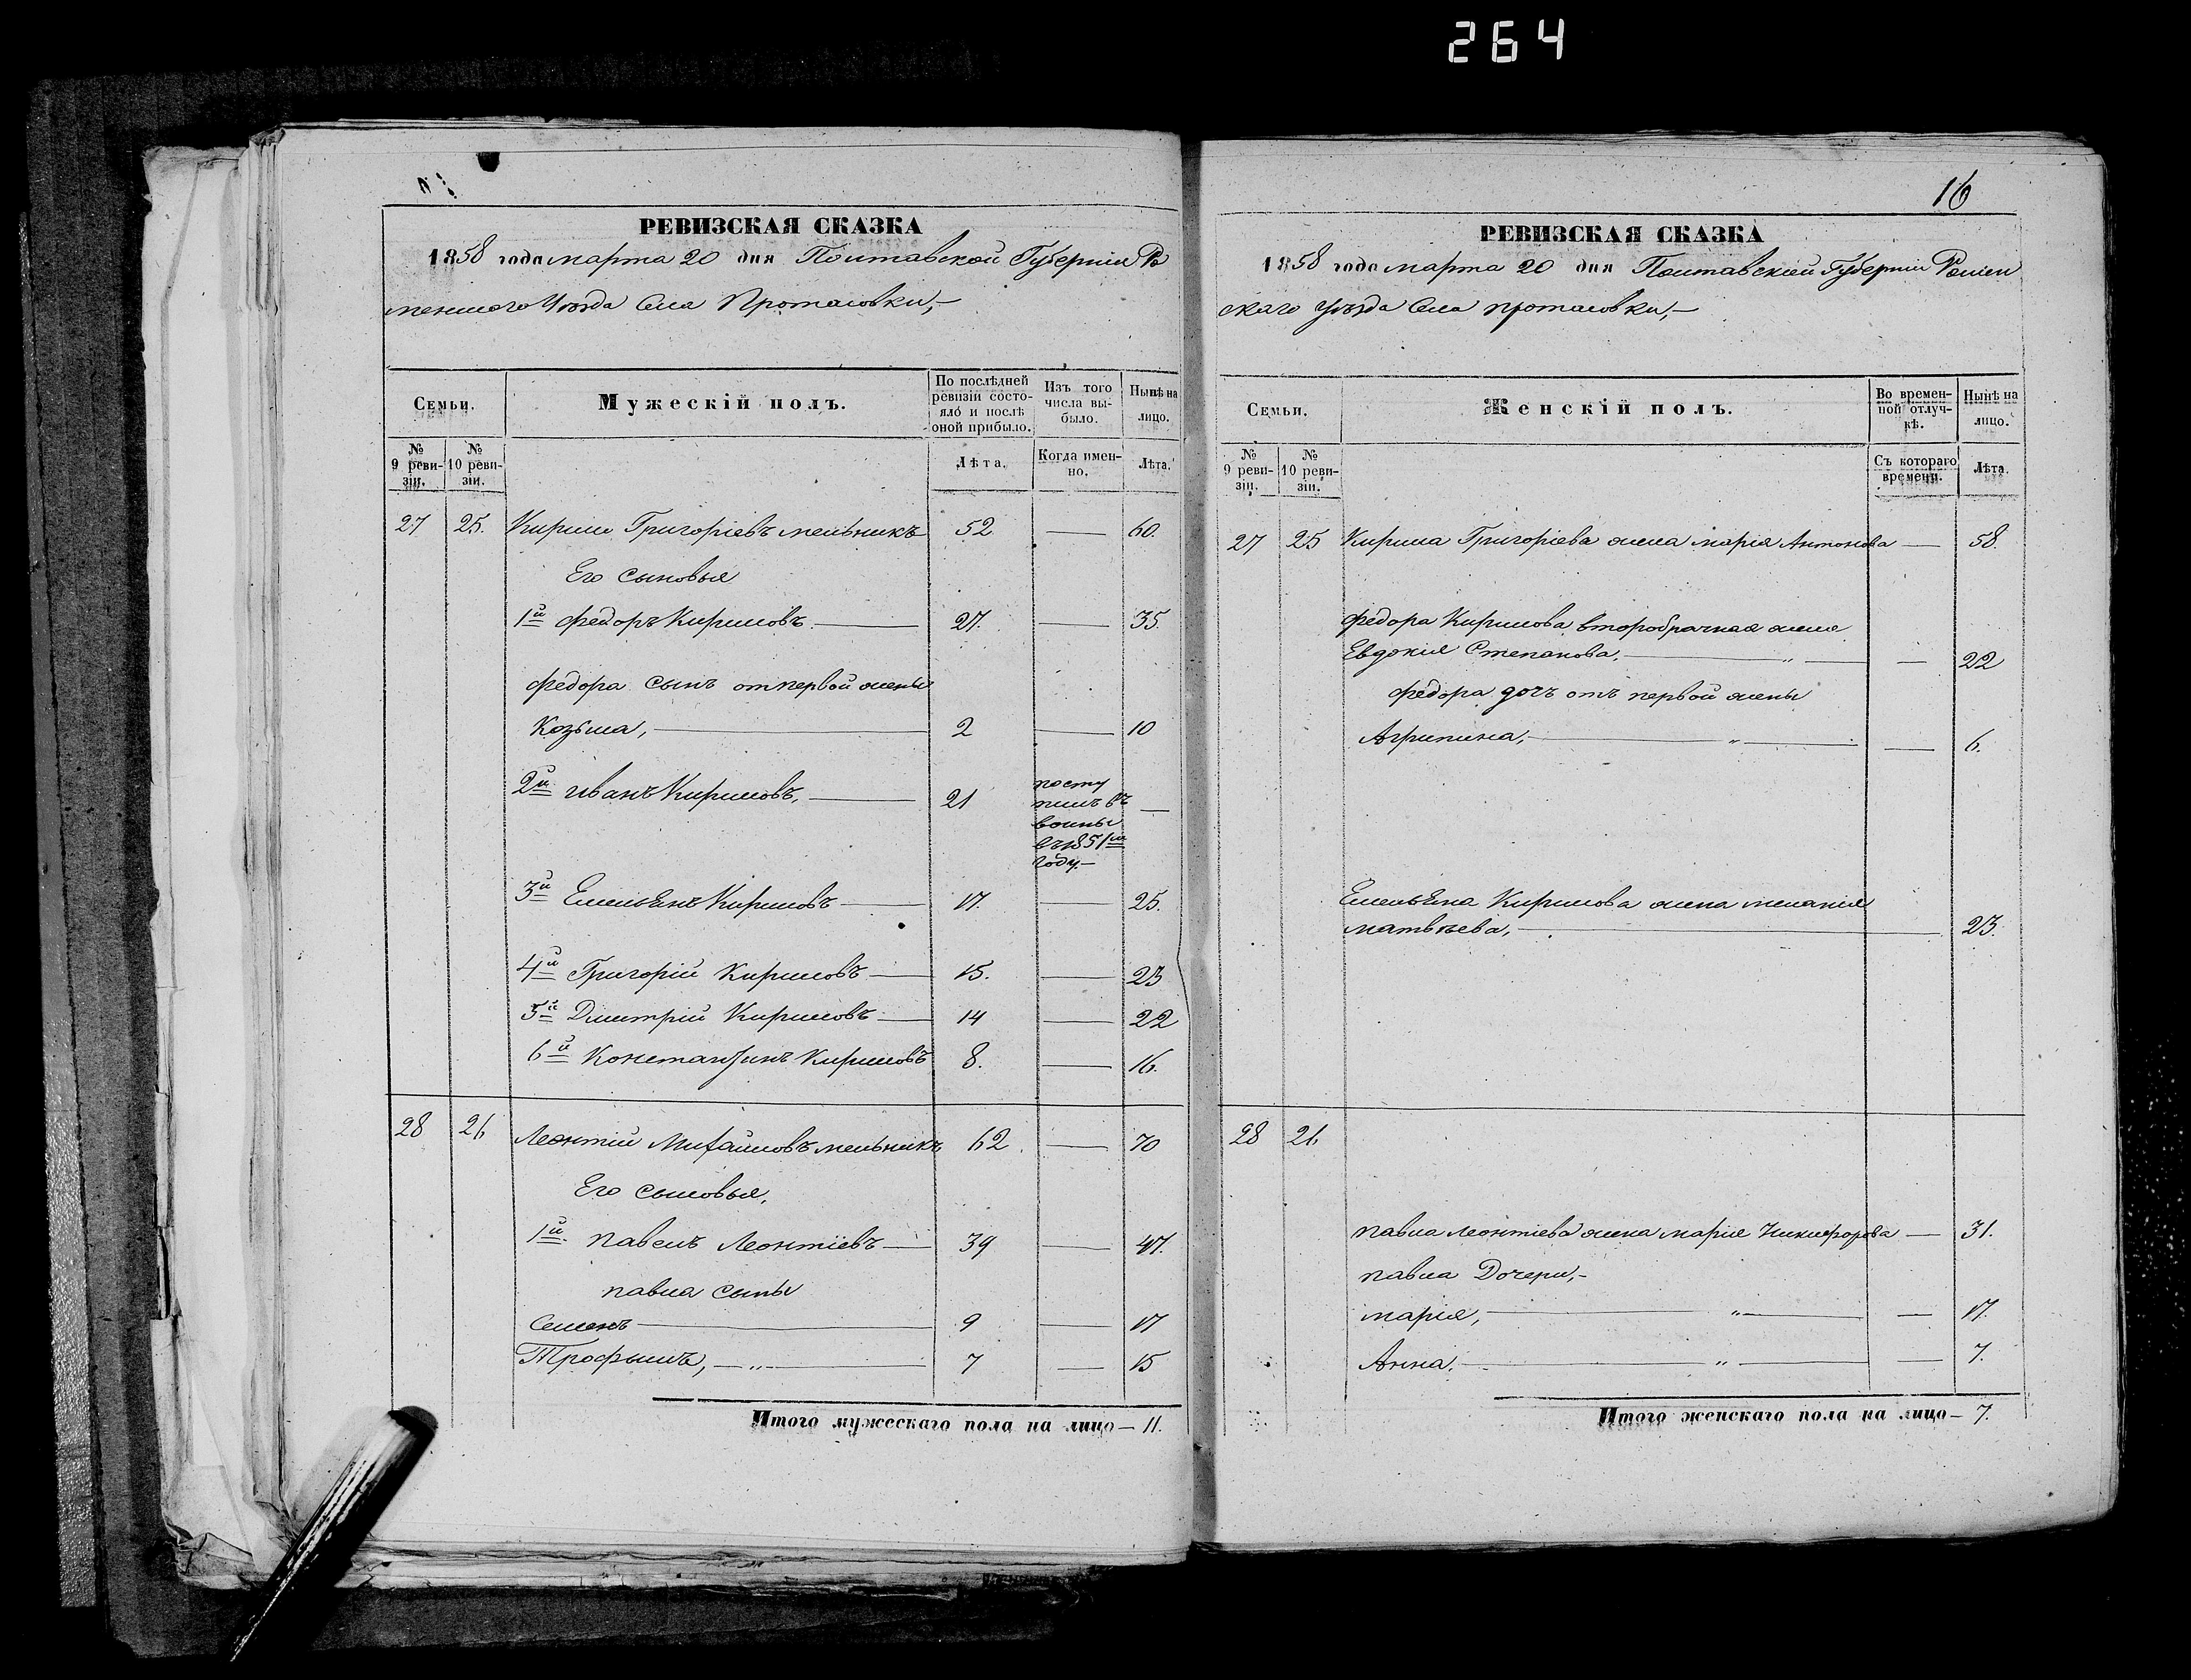 264
РЕВИЗСКАЯ СКАЗКА
1858 года марта 20 дня Полтавской Губерніи Ро
менскаго Уѣзда Села Протасовки,—
Семьи.
Мужескій полъ.
По послѣдней ревизіи состо-
яло и послѣ оной прибыло.
Изъ того числа вы-
было.
Нынѣ на лицо.
№ 9 реви-
зіи.
№ 10 реви-
зіи.
Лѣта.
Когда имен-
но.
Лѣта.
27 25. Кирилъ Григоріевъ мельникъ 52 — 60.
Его сыновья
1й федоръ Кириловъ — 27. — 35.
федора сынъ отпервой жены
Козьма, — 2 — 10
2й иванъ Кириловъ, — 21 посту
пилъ въ —
воины
въ 1851м
году.—
3й Емельянъ Кириловъ — 17. — 25.
4й Григорій Кириловъ — 15. — 23
5й Дмитрій Кириловъ — 14 — 22
6й Константинъ Кириловъ 8. — 16.
28 26 Леонтій Михайловъ мельникъ 62. — 70
Его сыновья,
1й. павелъ Леонтіевъ — 39 — 47.
павла сыны
Семенъ — 9 — 17
Трофымъ, — „ — 7 — 15
Итого мужескаго пола на лицо — 11.
16
РЕВИЗСКАЯ СКАЗКА
1858 года марта 20 дня Полтавской Губерніи Ромен
скаго уѣзда Села протасовки,—
Семьи.
Женскій полъ.
Во времен-
ной отлуч-
кѣ.
Нынѣ на лицо.
№ 9 реви-
зіи.
№ 10 реви-
зіи.
Съ котораго времени.
Лѣта.
27 25 Кирила Григоріева жена марія Антонова — 58.
федора Кирилова второбрачная жена
Евдокія Степанова, — „ — — 22
федора дочь отъ первой жены
Агрипина, — „ — — 6.
Емельяна Кирилова жена меланія
матвѣева, — 23.
28 26
павла леонтіева жена марія Никифорова — 31.
павла Дочери,—
марія, — „ — — 17.
Анна. — „ — — 7.
Итого женскаго пола на лицо — 7.